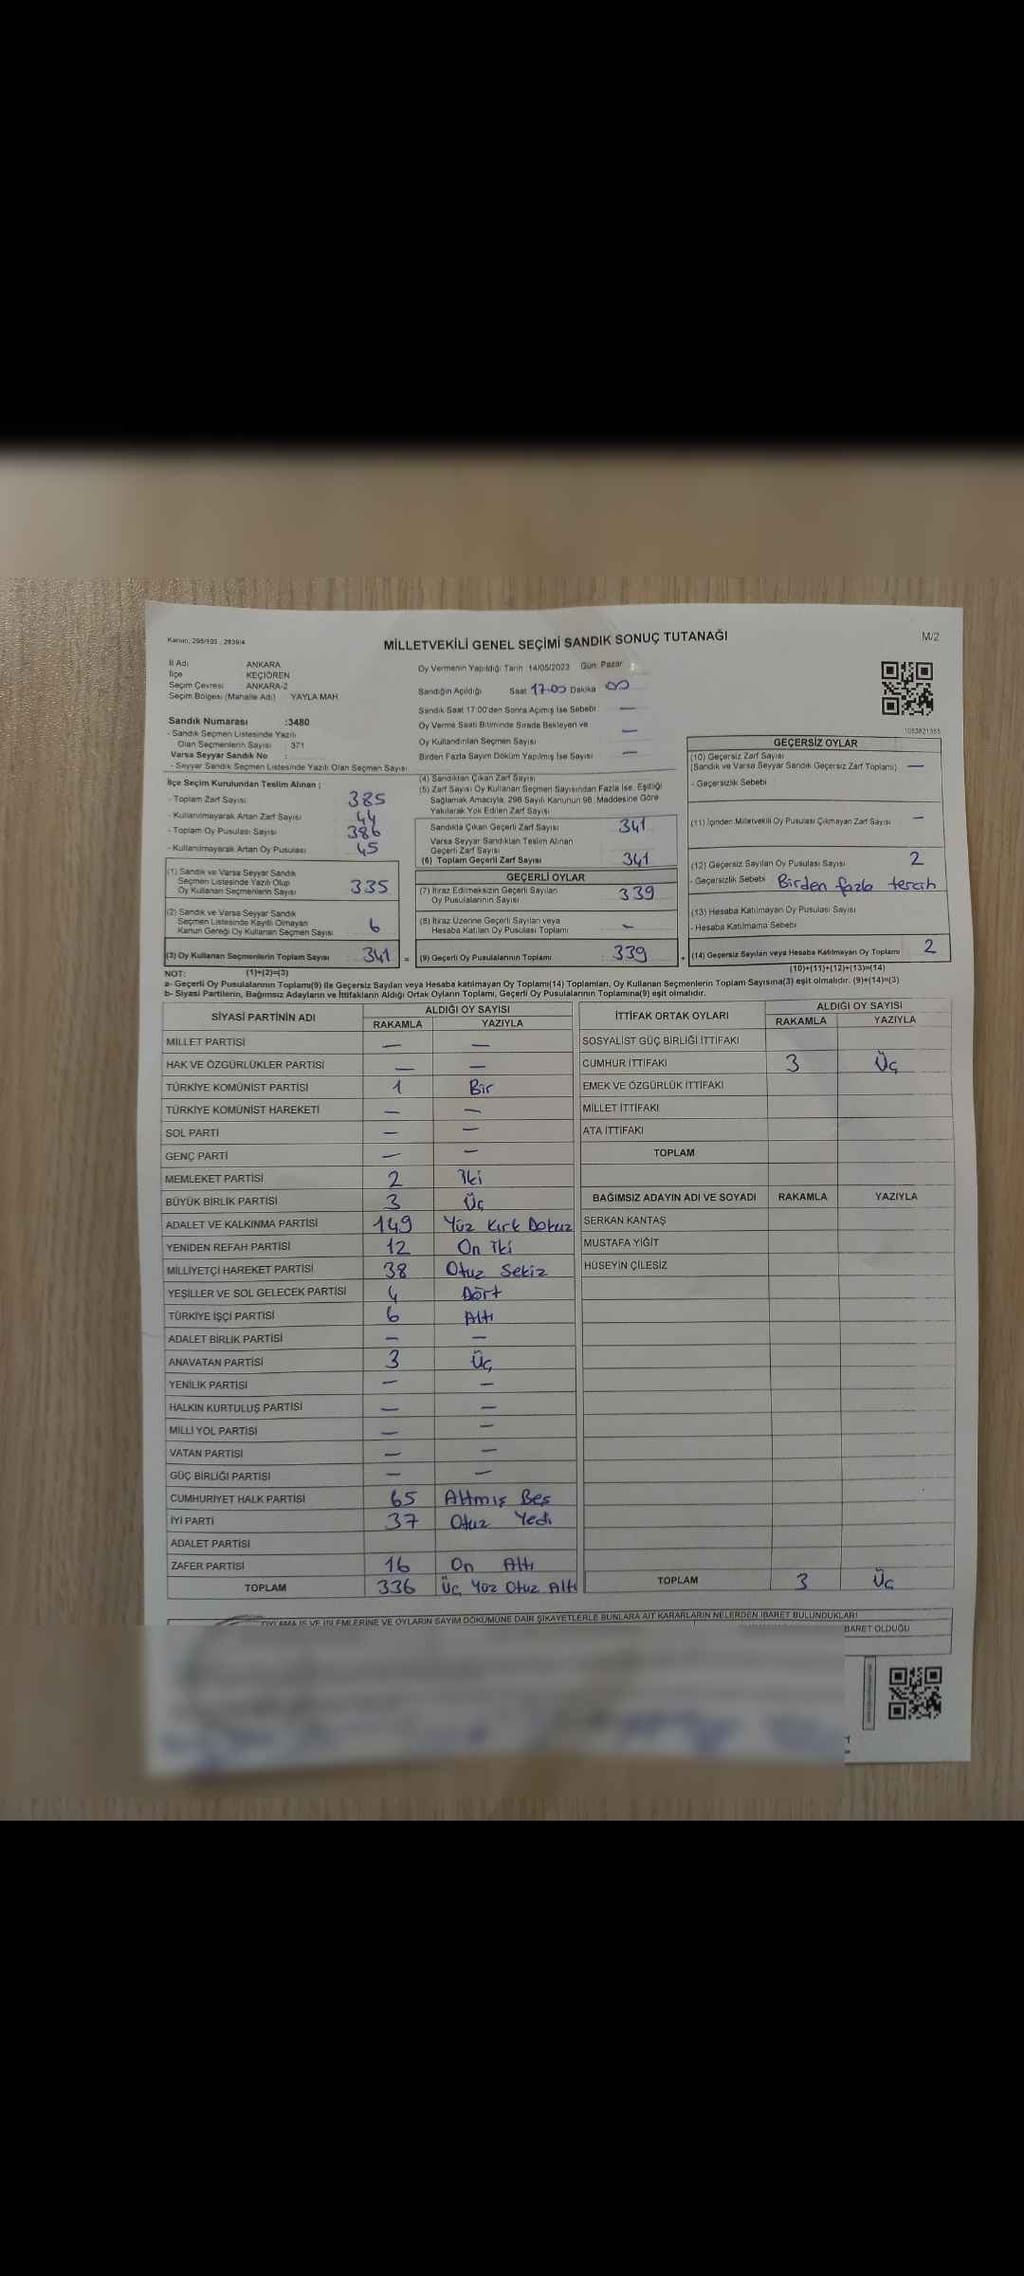 Kanun: 298/105, 2839/4
MİLLETVEKİLİ GENEL SEÇİMİ SANDIK SONUÇ TUTANAĞI
M/2
İl Adı ANKARA
İlçe KEÇİÖREN
Seçim Çevresi ANKARA-2
Seçim Bölgesi (Mahalle Adı) YAYLA MAH.
Oy Vermenin Yapıldığı Tarih 14/05/2023 Gün: Pazar
Sandığın Açıldığı Saat 17.00 Dakika 00
Sandık Saat 17:00'den Sonra Açılmış İse Sebebi —
Oy Verme Saati Bitiminde Sırada Bekleyen ve
Oy Kullandırılan Seçmen Sayısı —
Birden Fazla Sayım Döküm Yapılmış İse Sayısı —
Sandık Numarası :3480
- Sandık Seçmen Listesinde Yazılı
Olan Seçmenlerin Sayısı : 371
Varsa Seyyar Sandık No :
- Seyyar Sandık Seçmen Listesinde Yazılı Olan Seçmen Sayısı
İlçe Seçim Kurulundan Teslim Alınan ;
- Toplam Zarf Sayısı 385
- Kullanılmayarak Artan Zarf Sayısı 44
- Toplam Oy Pusulası Sayısı 386
- Kullanılmayarak Artan Oy Pusulası 45
(1) Sandık ve Varsa Seyyar Sandık
Seçmen Listesinde Yazılı Olup
Oy Kullanan Seçmenlerin Sayısı 335
(2) Sandık ve Varsa Seyyar Sandık
Seçmen Listesinde Kayıtlı Olmayan
Kanun Gereği Oy Kullanan Seçmen Sayısı 6
(3) Oy Kullanan Seçmenlerin Toplam Sayısı 341
(4) Sandıktan Çıkan Zarf Sayısı
(5) Zarf Sayısı Oy Kullanan Seçmen Sayısından Fazla İse, Eşitliği
Sağlamak Amacıyla, 298 Sayılı Kanunun 98. Maddesine Göre
Yakılarak Yok Edilen Zarf Sayısı
Sandıkta Çıkan Geçerli Zarf Sayısı 341
Varsa Seyyar Sandıktan Teslim Alınan
Geçerli Zarf Sayısı
(6) Toplam Geçerli Zarf Sayısı 341
GEÇERLİ OYLAR
(7) İtiraz Edilmeksizin Geçerli Sayılan
Oy Pusulalarının Sayısı 339
(8) İtiraz Üzerine Geçerli Sayılan veya
Hesaba Katılan Oy Pusulası Toplamı —
= (9) Geçerli Oy Pusulalarının Toplamı 339
GEÇERSİZ OYLAR
(10) Geçersiz Zarf Sayısı
(Sandık ve Varsa Seyyar Sandık Geçersiz Zarf Toplamı) —
- Geçersizlik Sebebi
(11) İçinden Milletvekili Oy Pusulası Çıkmayan Zarf Sayısı —
(12) Geçersiz Sayılan Oy Pusulası Sayısı 2
- Geçersizlik Sebebi Birden fazla tercih
(13) Hesaba Katılmayan Oy Pusulası Sayısı
- Hesaba Katılmama Sebebi
+ (14) Geçersiz Sayılan veya Hesaba Katılmayan Oy Toplamı 2
NOT: (1)+(2)=(3) (10)+(11)+(12)+(13)=(14)
a- Geçerli Oy Pusulalarının Toplamı(9) ile Geçersiz Sayılan veya Hesaba katılmayan Oy Toplamı(14) Toplamları, Oy Kullanan Seçmenlerin Toplam Sayısına(3) eşit olmalıdır. (9)+(14)=(3)
b- Siyasi Partilerin, Bağımsız Adayların ve İttifakların Aldığı Ortak Oyların Toplamı, Geçerli Oy Pusulalarının Toplamına(9) eşit olmalıdır.
SİYASİ PARTİNİN ADI ALDIĞI OY SAYISI
RAKAMLA YAZIYLA
MİLLET PARTİSİ — —
HAK VE ÖZGÜRLÜKLER PARTİSİ — —
TÜRKİYE KOMÜNİST PARTİSİ 1 Bir
TÜRKİYE KOMÜNİST HAREKETİ — —
SOL PARTİ — —
GENÇ PARTİ — —
MEMLEKET PARTİSİ 2 İki
BÜYÜK BİRLİK PARTİSİ 3 Üç
ADALET VE KALKINMA PARTİSİ 149 Yüz Kırk Dokuz
YENİDEN REFAH PARTİSİ 12 On İki
MİLLİYETÇİ HAREKET PARTİSİ 38 Otuz Sekiz
YEŞİLLER VE SOL GELECEK PARTİSİ 4 Dört
TÜRKİYE İŞÇİ PARTİSİ 6 Altı
ADALET BİRLİK PARTİSİ — —
ANAVATAN PARTİSİ 3 Üç
YENİLİK PARTİSİ — —
HALKIN KURTULUŞ PARTİSİ — —
MİLLİ YOL PARTİSİ — —
VATAN PARTİSİ — —
GÜÇ BİRLİĞİ PARTİSİ — —
CUMHURİYET HALK PARTİSİ 65 Altmış Beş
İYİ PARTİ 37 Otuz Yedi
ADALET PARTİSİ
ZAFER PARTİSİ 16 On Altı
TOPLAM 336 Üç Yüz Otuz Altı
İTTİFAK ORTAK OYLARI ALDIĞI OY SAYISI
RAKAMLA YAZIYLA
SOSYALİST GÜÇ BİRLİĞİ İTTİFAKI
CUMHUR İTTİFAKI 3 Üç
EMEK VE ÖZGÜRLÜK İTTİFAKI
MİLLET İTTİFAKI
ATA İTTİFAKI
TOPLAM
BAĞIMSIZ ADAYIN ADI VE SOYADI RAKAMLA YAZIYLA
SERKAN KANTAŞ
MUSTAFA YİĞİT
HÜSEYİN ÇİLESİZ
TOPLAM 3 Üç
OYLAMA İŞ VE İŞLEMLERİNE VE OYLARIN SAYIM DÖKÜMÜNE DAİR ŞİKAYETLERLE BUNLARA AİT KARARLARIN NELERDEN İBARET BULUNDUKLARI
BARET OLDUĞU